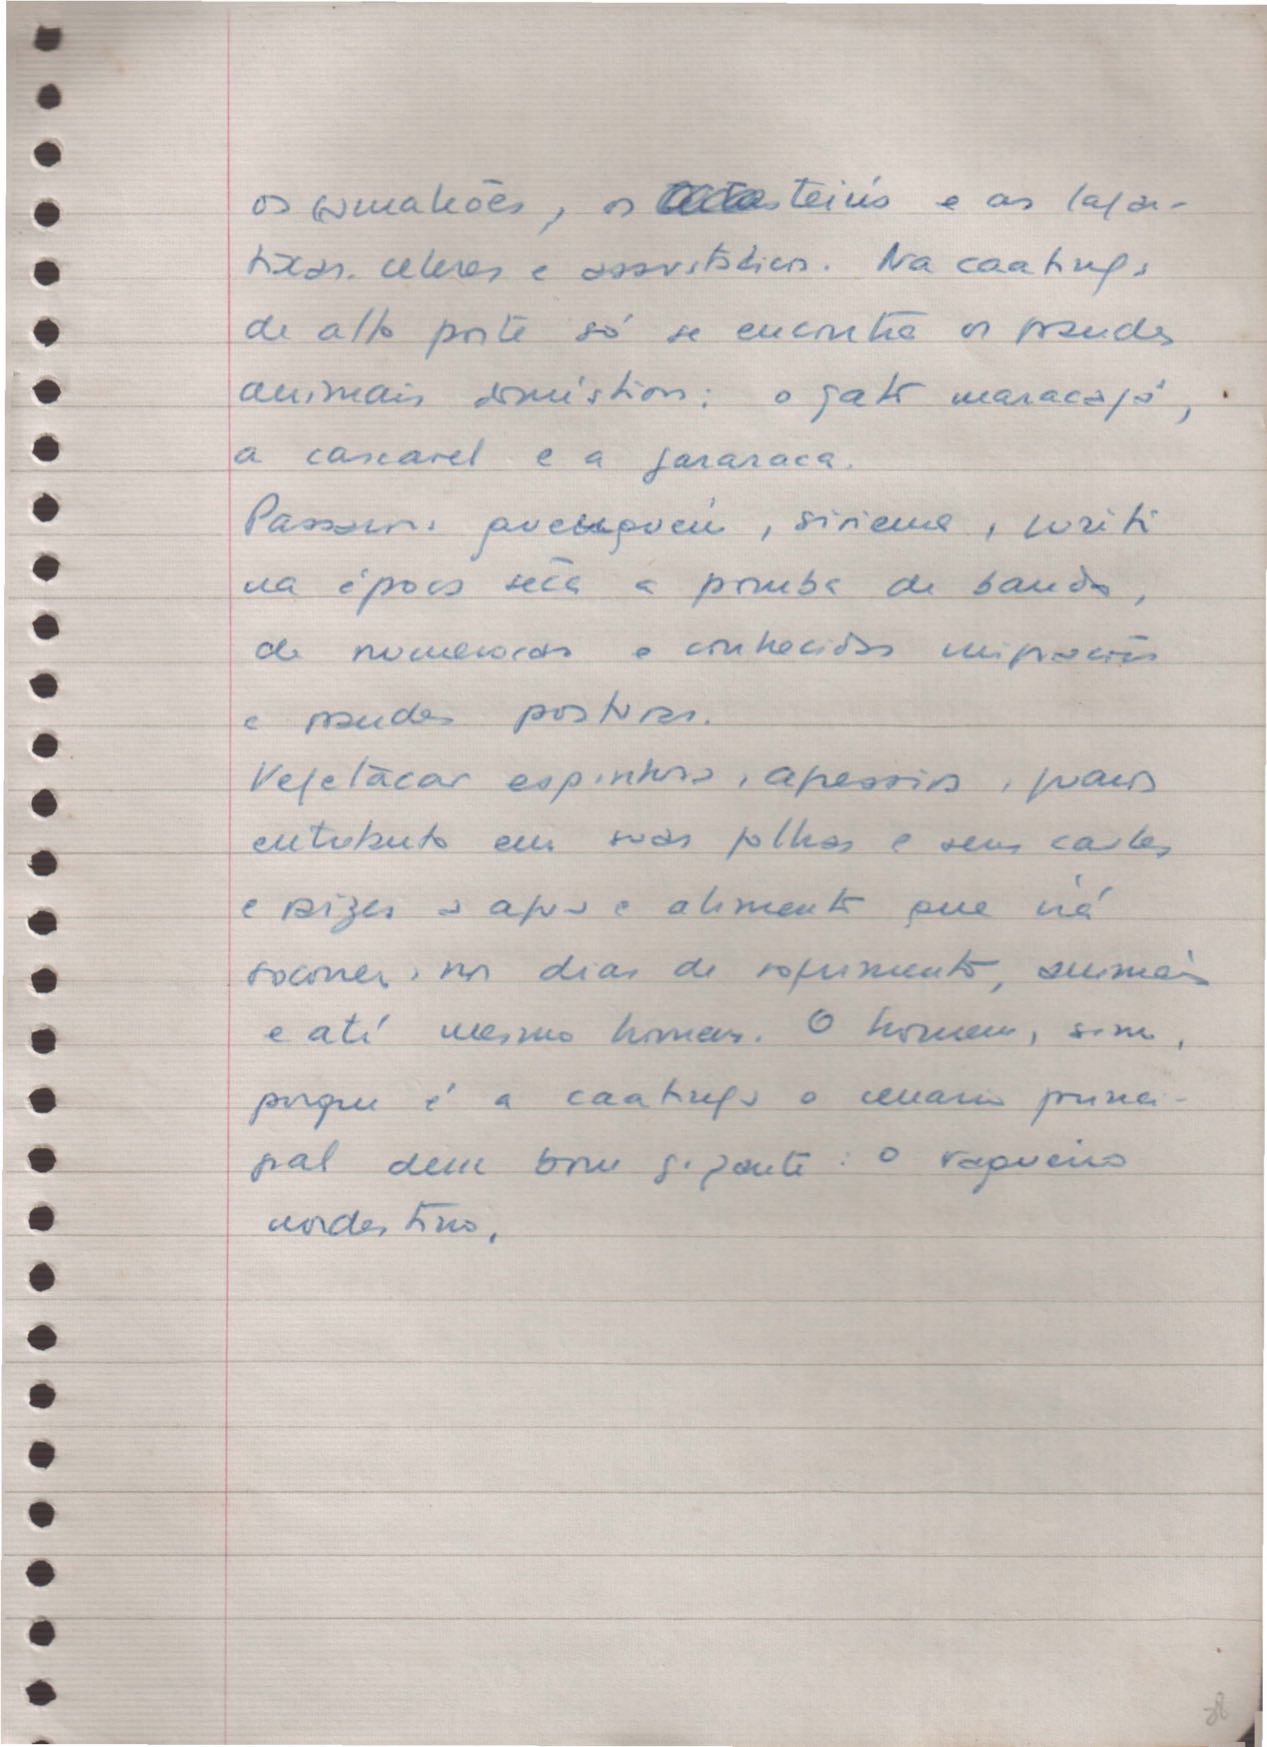 os camaleões, os teiús e as lagar-
tixas. celeres e assustadicos. Na caatinga
de alto porte só se encontra os grandes
animais domésticos: o gato maracajá,
a cascavel e a jararaca.
Passaros: , siriema, juriti
na época sêca a pomba de bando,
de numerosas e conhecidas migrações
e grandes posturas.
Vegetacao espinhosa, agressiva, guarda
em suas folhas e seus caules
e raizes a agua e alimento que irá
socorrer, nos dias de sofrimento, animais
e até mesmo homens. O homem, sim,
porque é a caatinga o cenario princi-
pal dum bom gigante: o vaqueiro
nordestino.
38